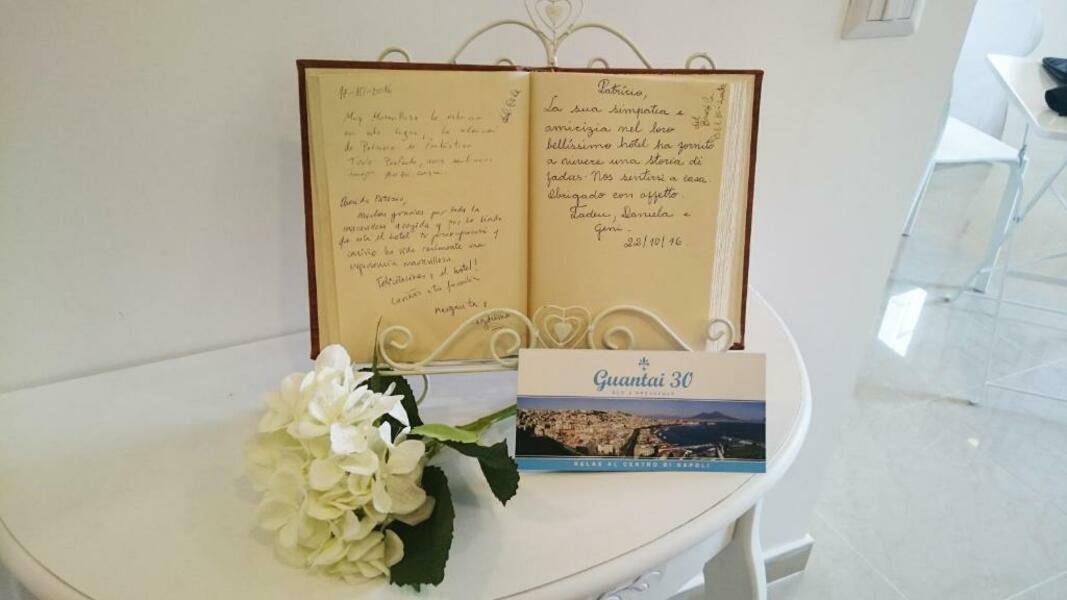 17-10-2016
Muy
en este lugar, la
de Patricio es fantástica
Todo Perfecto, nos sentimos
Patricio,
Muchas gracias por toda la
maravillosa acogida y por lo lindo
que está el hotel tu preocupación y
cariño ha sido realmente una
experiencia maravillosa.
Felicitaciones x el hotel!
Cariños a tu familia
Margarita y
Patricio,
La sua simpatia e
amicizia nel loro
bellissimo hotel ha fornito
a vivere una storia di
fadas. Nos sentirsi a casa.
Obrigado con affetto.
Tadeu, Daniela e
Geni.
22/10/16.
del
Brasil
Guantai 30
BED & BREAKFAST
RELAX AL CENTRO DI NAPOLI